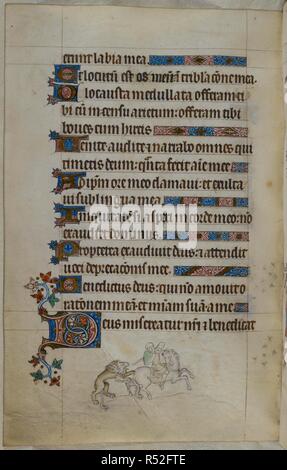 erunt labia mea.
Et locutū est os meū: ī tribl̄acōne mea.
Holocausta medullata offeram ti
bi cū incensu arietum: offeram tibi
boues cum hircis
Uenite audite ⁊ narrabo omnes qui
timetis deum: q̄nta fecit aīe mee
Ad ip̄m ore meo clamaui: et exulta
ui sub lingua mea
Iniquitatem si aspexi in corde meo: nō
exaudiet dominus
Propterea exaudiuit deus: ⁊ attendit
uoci dep̄cacōnis mee
Benedictus deus: qui nō amouit o
rationem meam: et m̄iam suā a me
Deus misereatur nr̄i ⁊ benedicat
alamy
Image ID: R52FTE
www.alamy.com